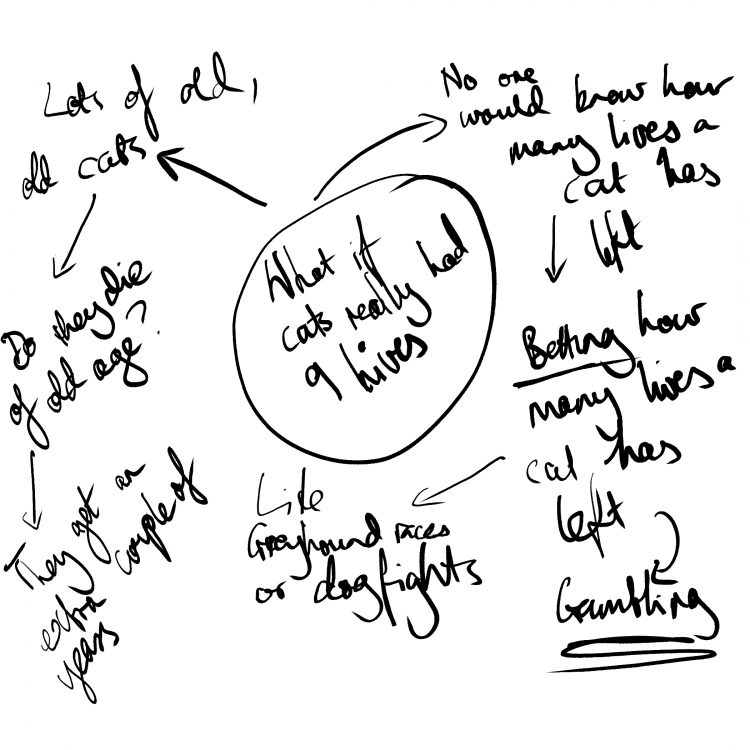 What if
cats really had
9 lives
Lots of old,
old cats
Do they die
of old age?
They get an
extra couple of
years
No one
would know how
many lives a
cat has
left
Betting how
many lives a
cat has
left
Gambling
Like
Greyhound races
or dogfights